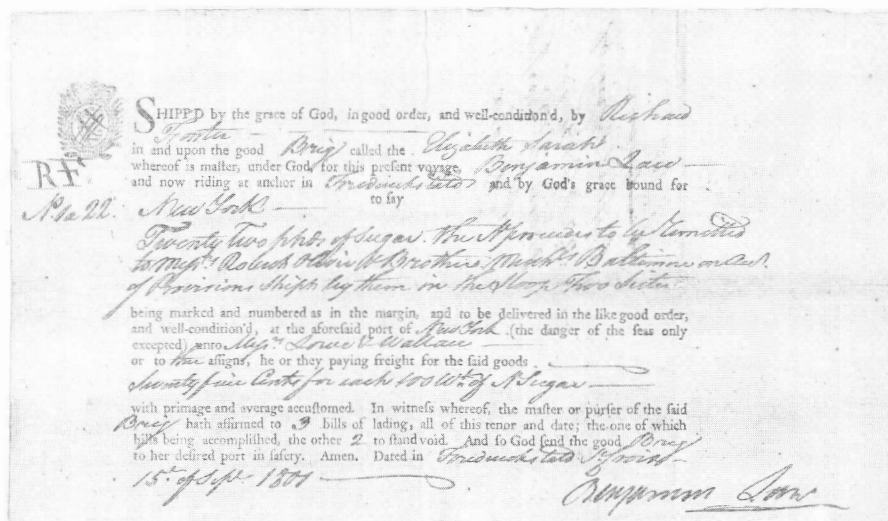 SHIPP'D by the grace of God, in good order, and well-condition'd, by Richard
Foster
in and upon the good Brig called the Elizabeth Sarah
whereof is master, under God, for this present voyage, Benjamin Law
and now riding at anchor in Fredericksted and by God's grace bound for
RF
No. 1 a 22. New York to say
Twenty Two hhds of Sugar. the Nt proceeds to be remitted
to Messrs Robert Oliver & Brothers Mercht's Baltimore on Acct.
of Provisions Shipt by them in the Sloop Two Sisters
being marked and numbered as in the margin, and to be delivered in the like good order,
and well-condition'd, at the aforesaid port of New York (the danger of the seas only
excepted) unto Messrs Lowe & Wallace
or to assigns, he or they paying freight for the said goods
Seventy five Cents for each 100 Wt. of Nt Sugar
with primage and average accustomed. In witness whereof, the master or purser of the said
Brig hath affirmed to 3 bills of lading, all of this tenor and date; the one of which
bills being accomplished, the other 2 to stand void. And so God send the good Brig
to her desired port in safety. Amen. Dated in Fredericksted St Croix
15t. of Sepr. 1801
Benjamin Law